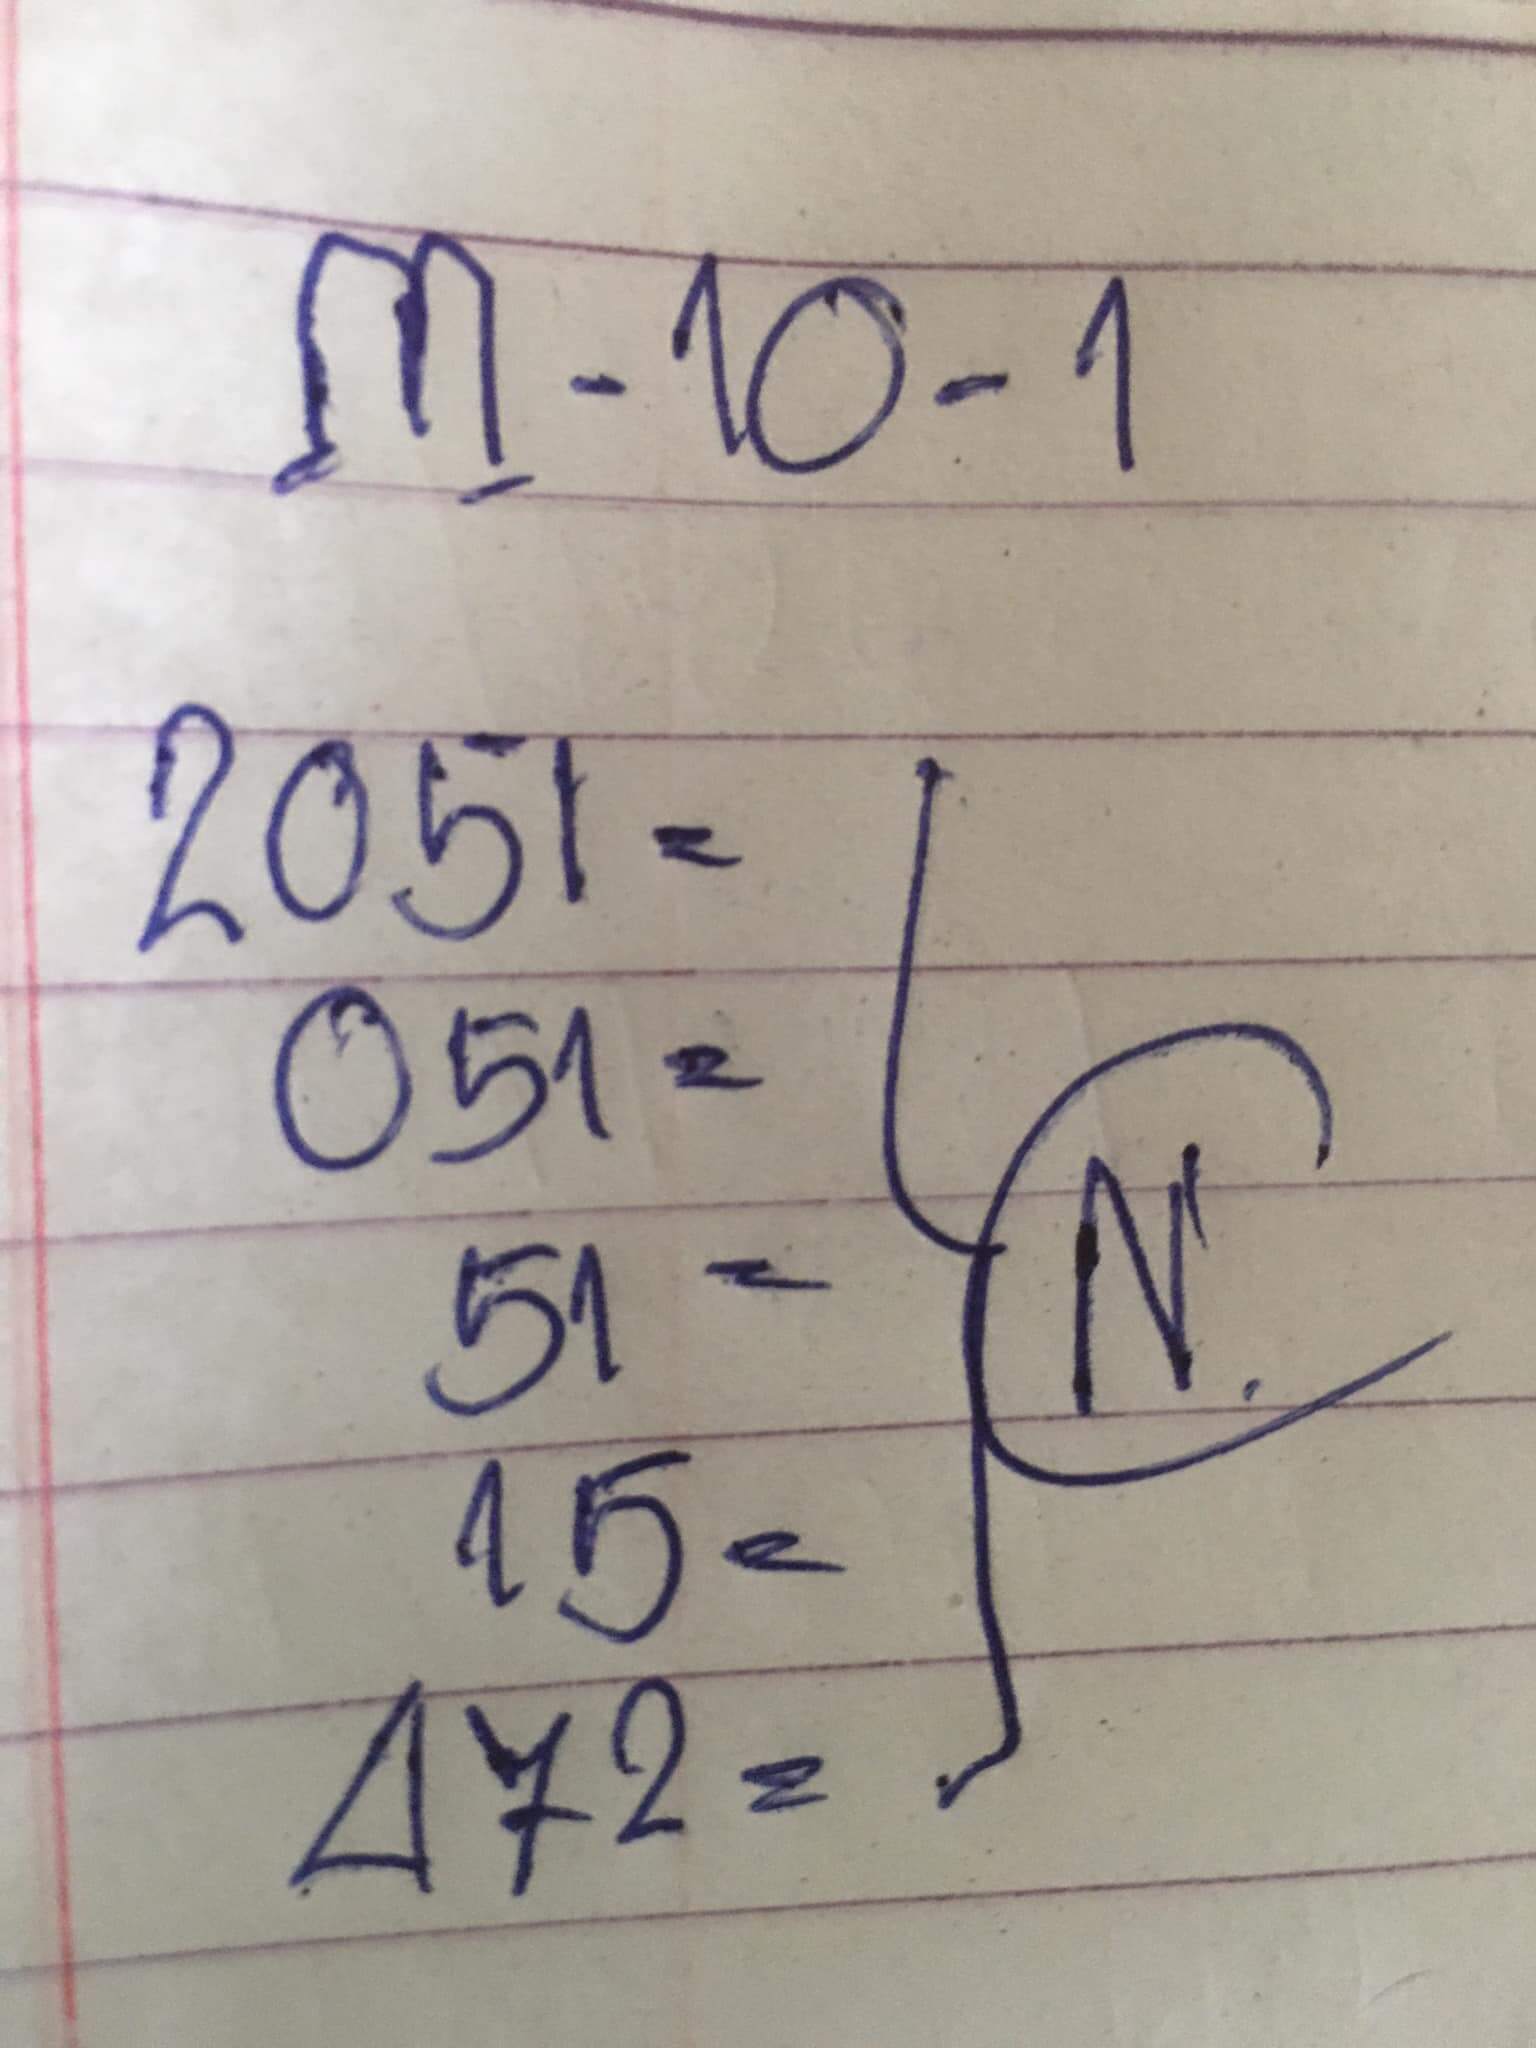 M-10-1
2051=
051=
51=
N.
15=
472=